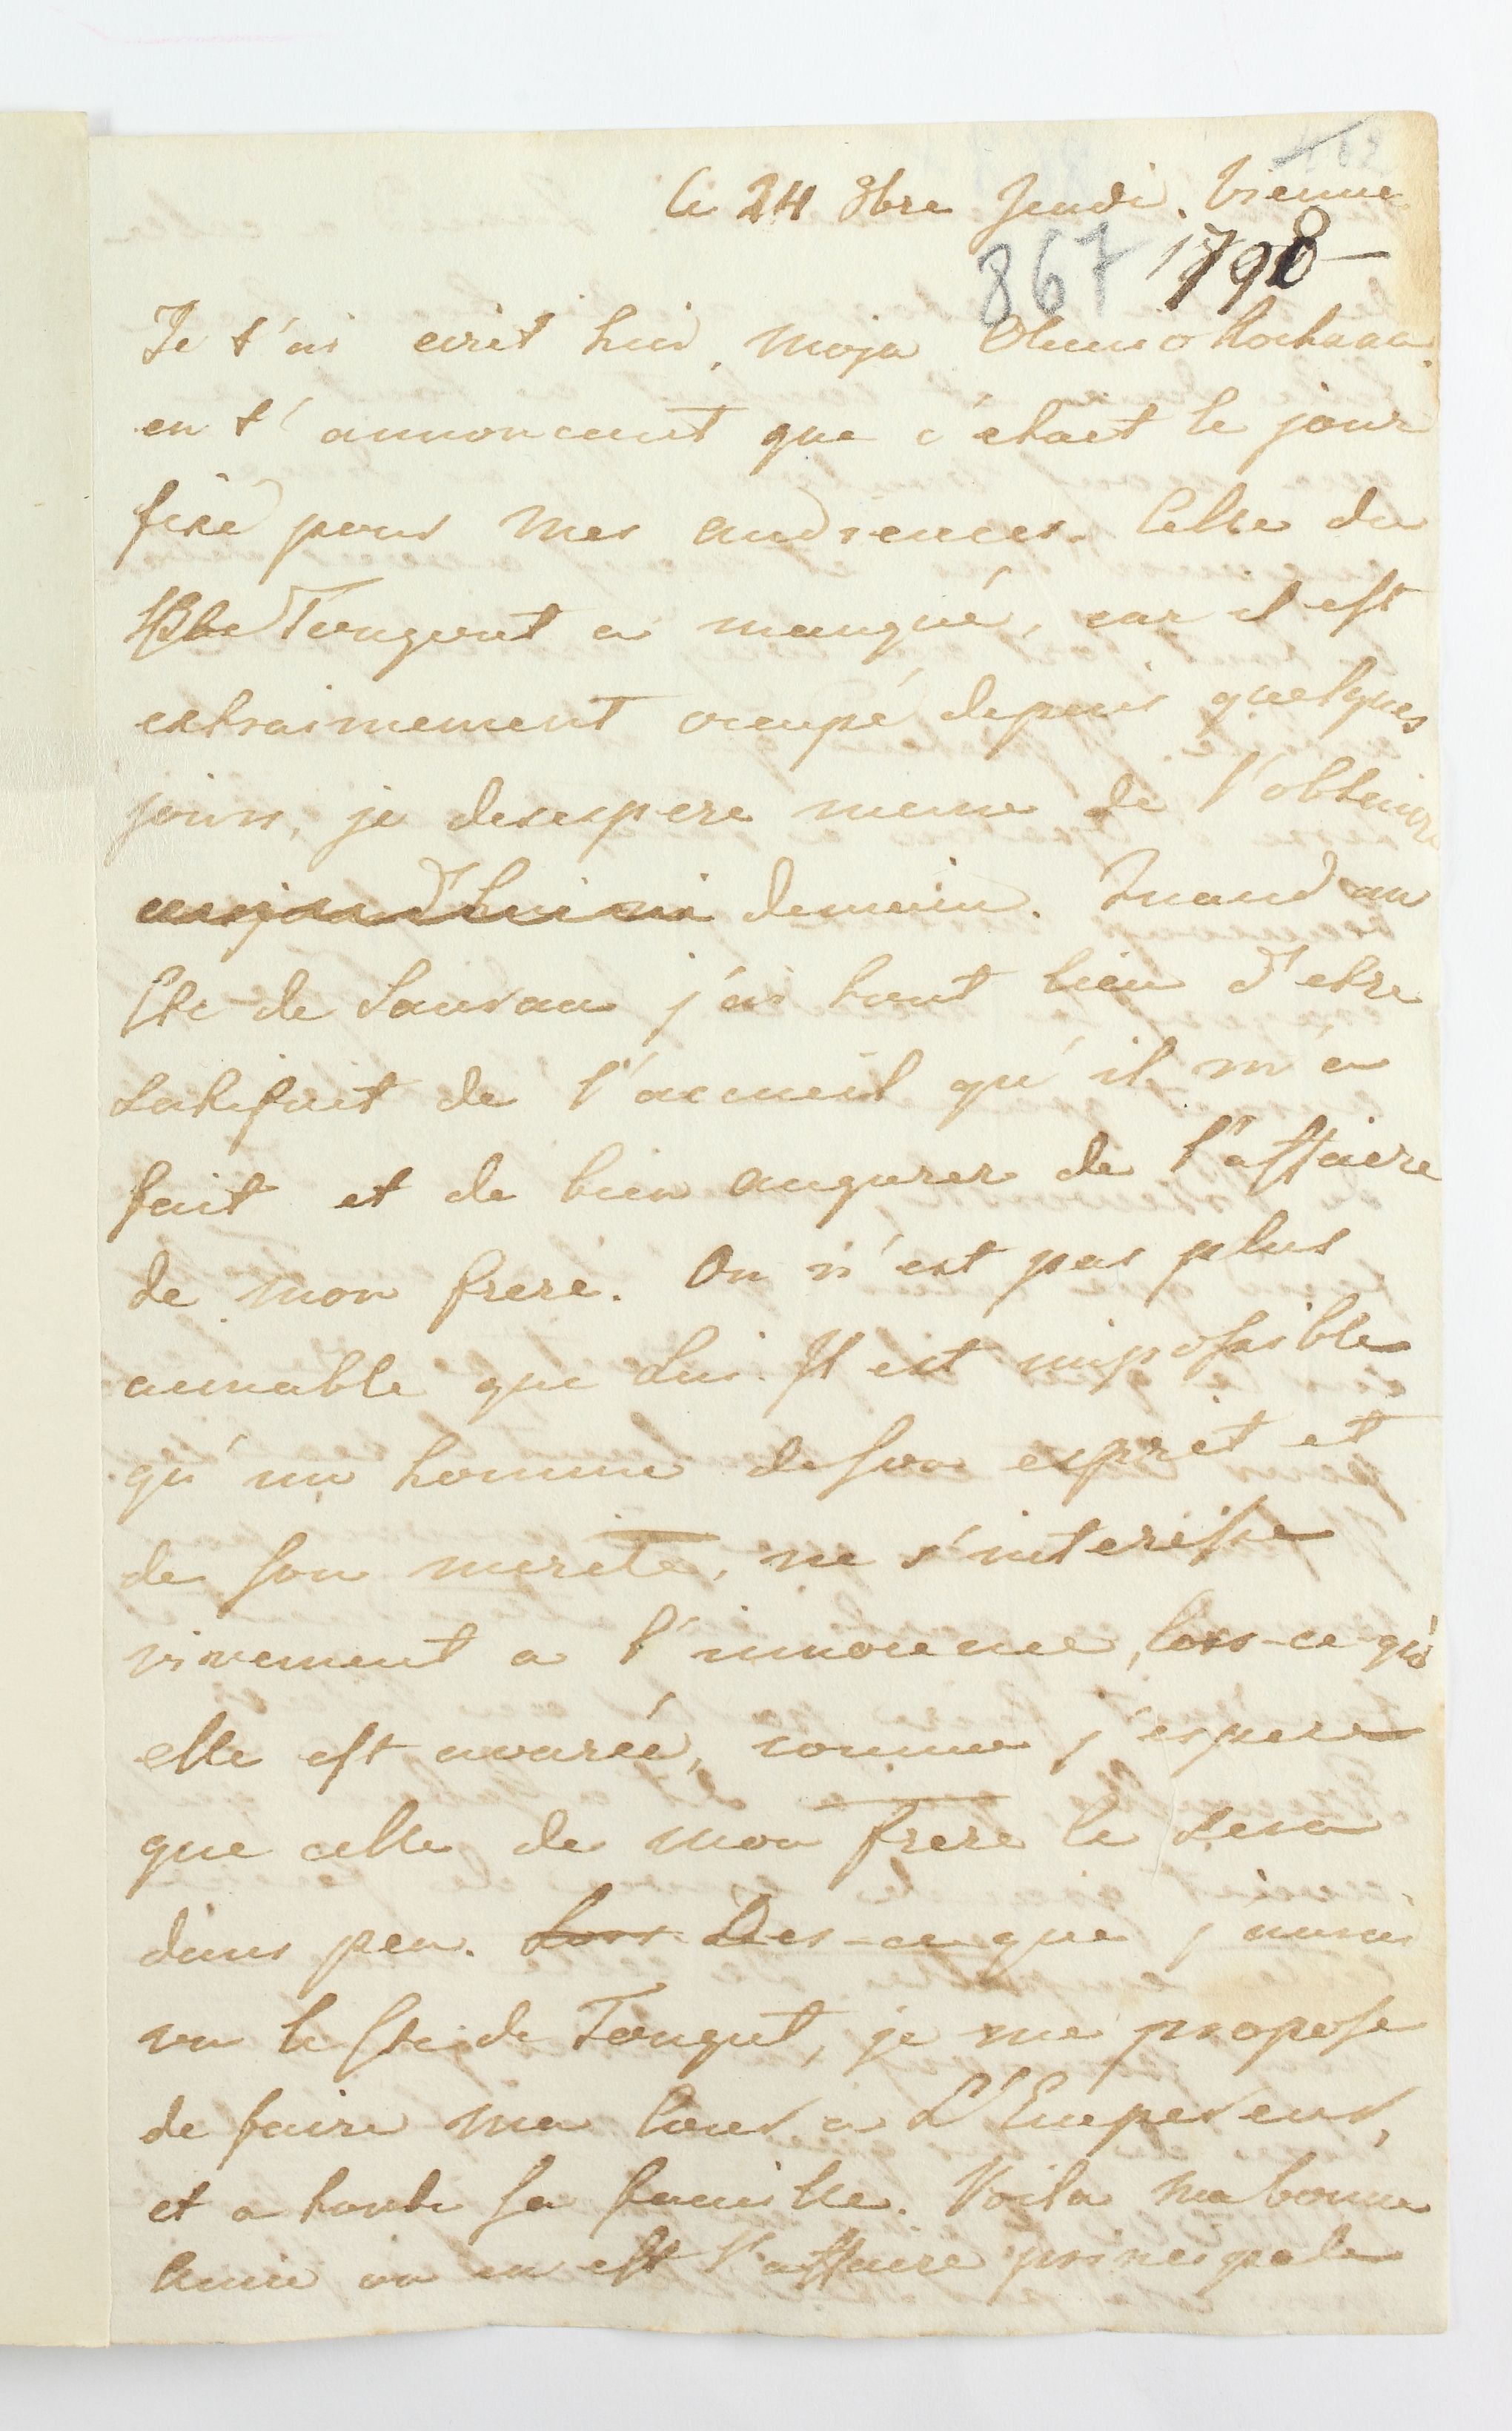 Ce 24 8bre Jeudi. Vienne
867 1798
Je t'ai ecrit hier, moja kochana
en t'annoncant que c'etoit le jour
fixé pour mes audiences. Celle du
Tougout a manqué, car il est
extraimement ocupé depuis quelques
jours, je desespere meme de l'obtenir
aujourd'hui ni demain. Quand au
Cte de Saurau j'ai tout lieu d'etre
satisfait de l'accueil qu'il m'a
fait et de bien augurer de l'affaire
de mon frere. On n'est pas plus
aimable que lui. Il est impossible
qu'un homme de son esprit et
de son merite, ne s'interesse
vivement a l'innocence, lors-ce-qu'
elle est averée, comme j'espere
que celle de mon frere le sera
dans peu. Lors Des-ce que j'aurai
vu le Cte de Tougut, je me propose
de faire ma Cour a L'Empereur,
et a toute sa famille. Voila ma bonne
Amie ou en est l'affaire principale